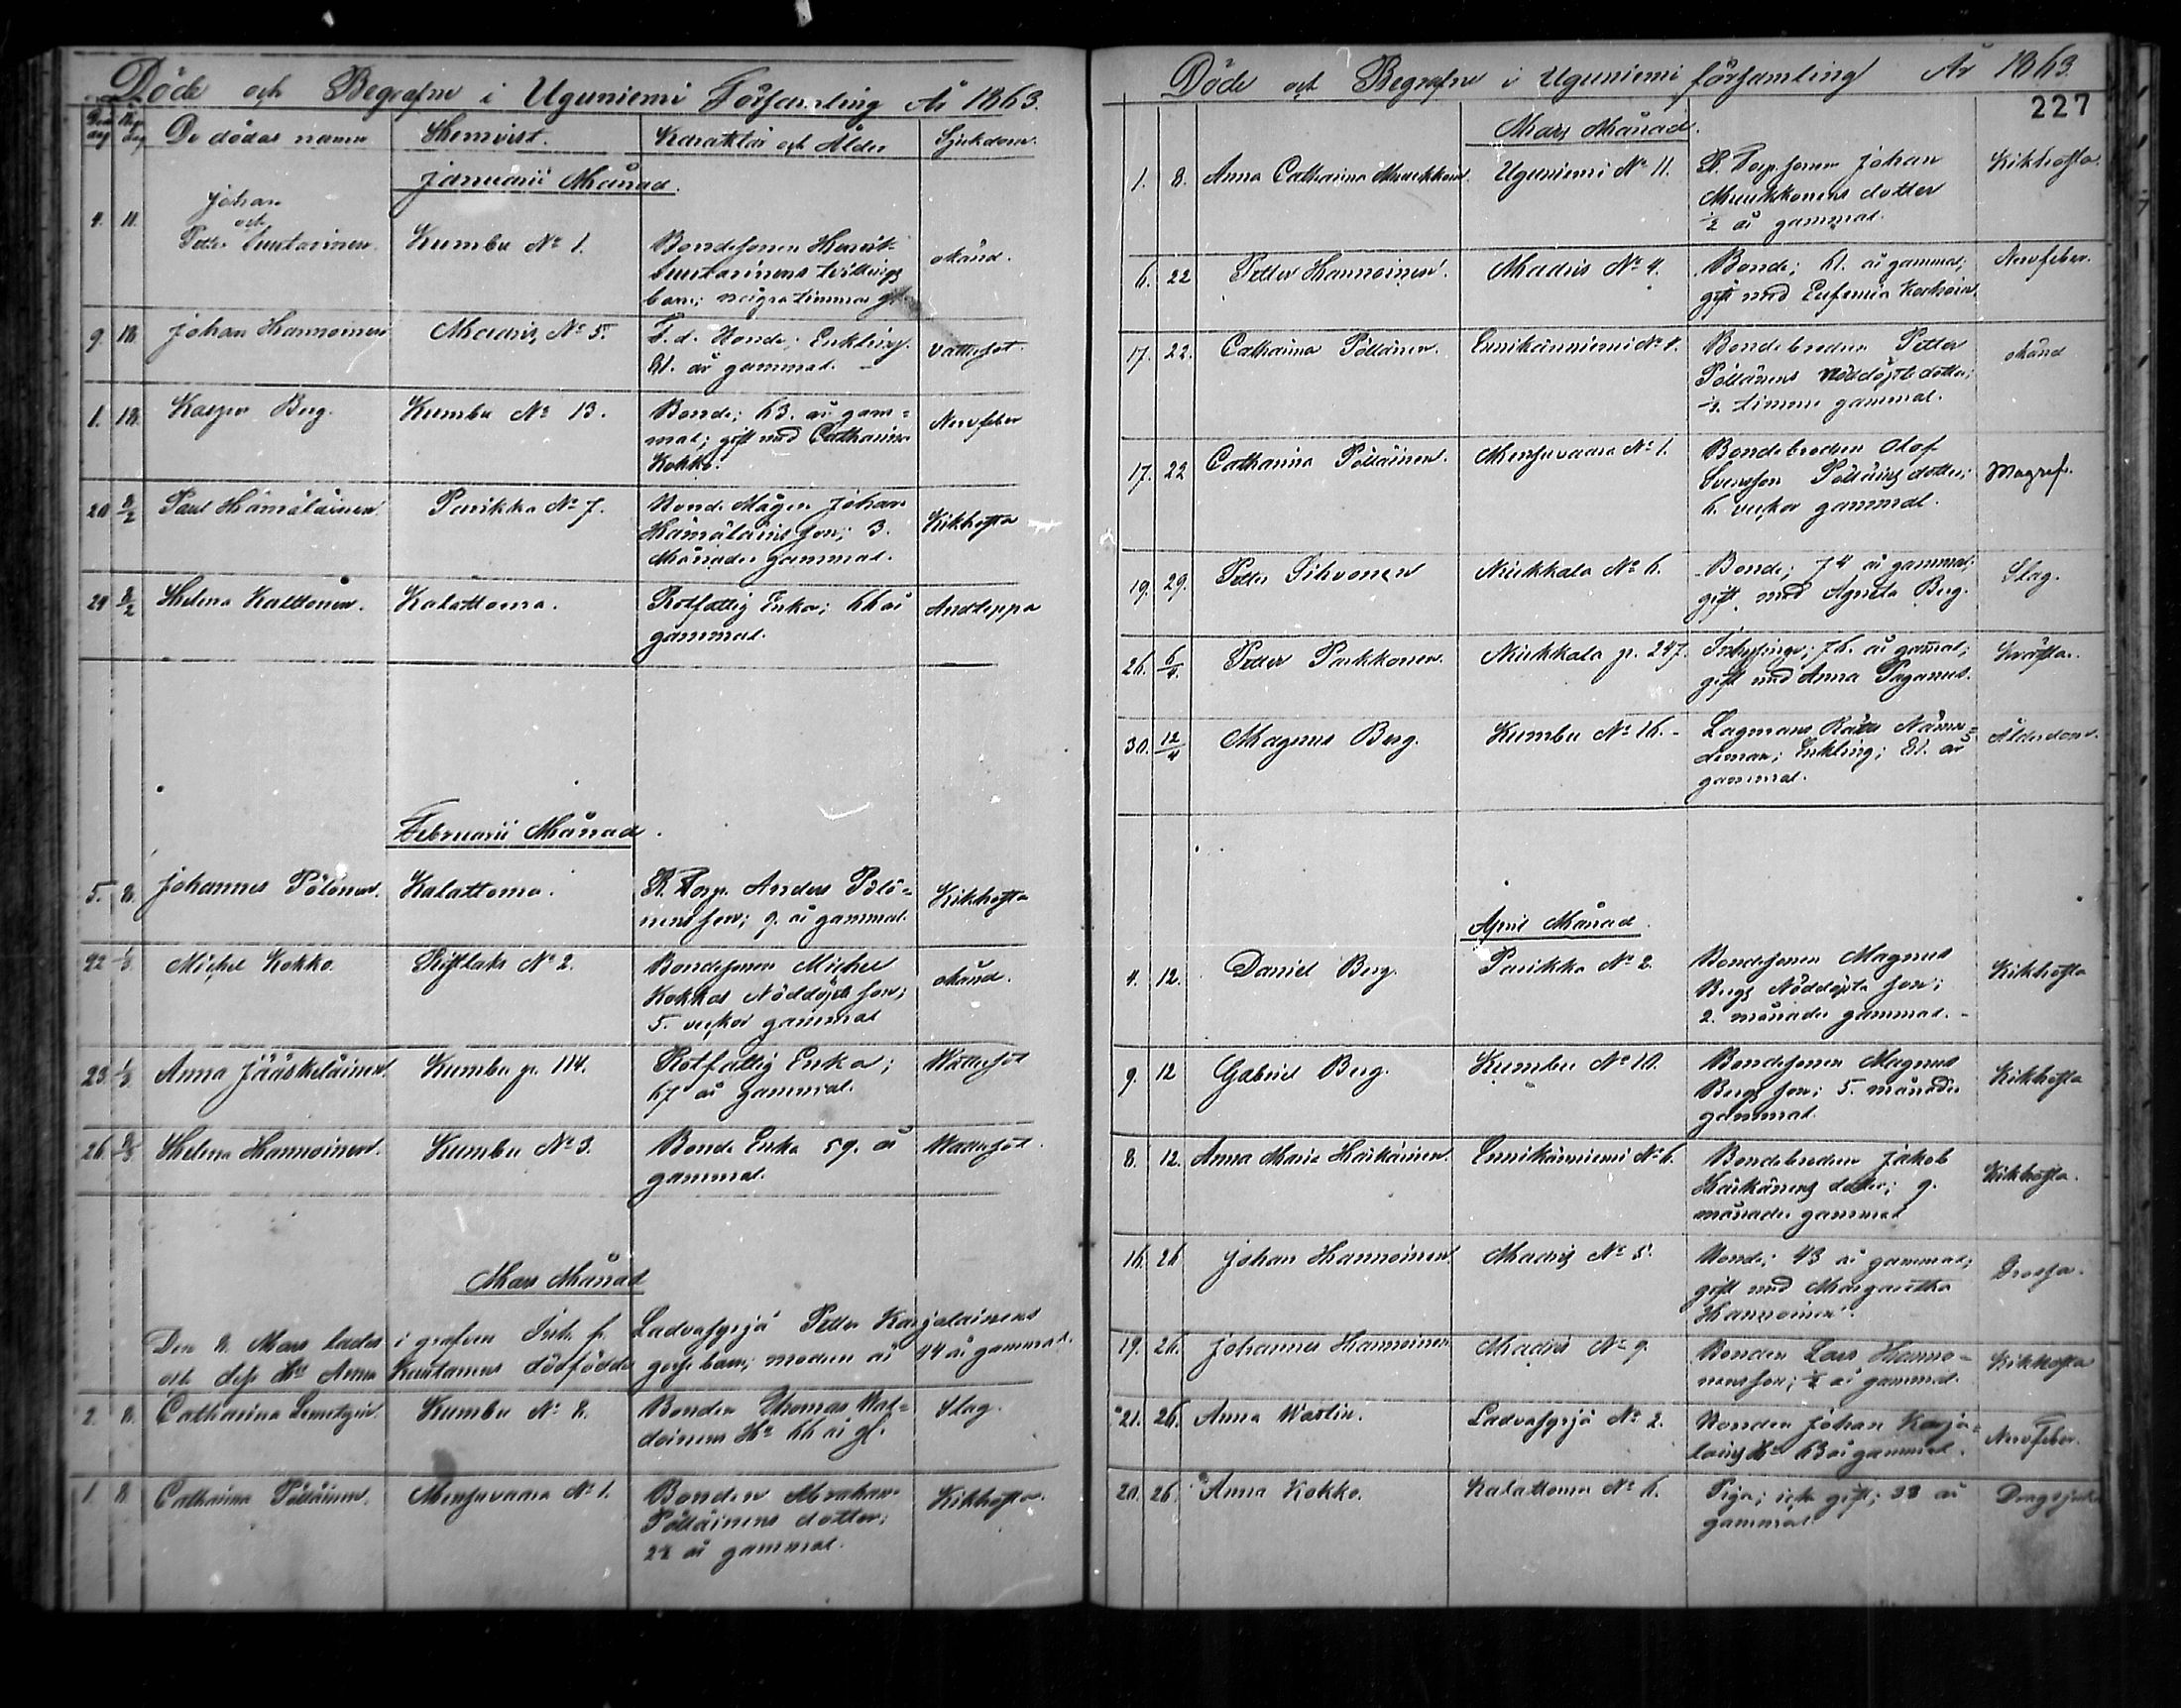 Döde och Begrafne i Uguniemi Församling År 1863.
Död. dag Begr. dag De dödas namn Hemvist. Karaktär och Ålder Sjukdom.
Januarii Månad.
Johan
och
4. 11. Petter Kumbu No 1. Bondesonen Henrik
tvillings
barn; några timmar gl. okänd.
9. 18. Johan Hannoinen Madris No 5. F.d. Bonde; Enkling.
81. år gammal. Vattusot.
1. 18. Kasper Berg. Kumbu No 13. Bonde; 63. år gam-
mal; gift med Catharina
Kokko. Nervfeber
20 8/2 Paul Hämäläinen Parikka No 7. Bonde Mågen Johan
Hämäläins son; 3.
Månader gammal. Kikhosta
24 8/2 Helena Kalttonen. Kalattoma. Rotfattig Enka; 66 år
gammal. Andteppa
Februarii Månad.
5. 8. Johannes Pölönen. Kalattoma. R. Torp. Anders Pölö-
nens son; 9. år gammal. Kikhosta
22 1/3 Michel Kokko. Ristlaks No 2. Bondesonen Michel
Kokkos Nöddöpte son;
5. veckor gammal okänd.
23. 1/3 Anna Jääskeläinen. Kumbu p. 114. Rotfattig Enka;
67 år gammal. Wattusot
26. 8/3 Helena Hannoinen. Kumbu No 3. Bonde Enka 59. år
gammal. Wattusot.
Mars Månad
Den 8. Mars lades i grafven Inh. fr. Ladvafgsjä Petter Karjalainens
och dess Hu Anna dödfödde gosse barn; modren är 44 år gammal.
2. 8. Catharina Kumbu No 8. Bonden Thomas
Hu 66 år gl. Slag.
1. 8. Catharina Pöllänen. Mensuvaara No 1. Bonden Abraham
Pölläinens dotter;
år gammal. Kikhosta.
Döde och Begrafne i Uguniemi församling År 1863.
227
Mars Månad.
1. 8. Anna Catharina Muukkoin. Uguniemi No 11. R. Torp. sonen Johan
Muukkonens dotter
1/2 år gammal. Kikhosta.
6. 22 Petter Hannoinen. Madris No 4. Bonde; 61. år gammal;
gift med Eufemia Nervfeber.
17. 22. Catharina Pöllänen. Ennikäniemi No Bondebrodren Petter
Pöllänens Nöddöpte dotter;
timme gammal. okänd
17. 22 Catharina Pölläinen. Mensuvaara No 1. Bondebrodren Olof
Svensson dotter;
6. veckor gammal. Magref.
19. 29. Petter Sihvonen Niukkala No 6. Bonde; 74 år gammal;
gift med Agneta Berg. Slag.
26. 6/4. Petter Parkkonen. Niukkala p. 247. Inhysinge; 76. år gamal;
gift med Anna Paganus. Kräfta.
30. 12/4 Magnus Berg. Kumbu No 16. Lagmans Rätts Nämn-
deman; Enkling; 81. år
gammal. Ålderdom.
April Månad.
4. 12. Daniel Berg. Parikka No 2. Bondesonen Magnus
Bergs Nöddöpta son;
2. månader gammal. Kikhosta
9. 12 Gabriel Berg. Kumbu No 10. Bondesonen Magnus
Bergs son; 5. månader
gammal. Kikhosta
8. 12. Anna Maria Ennikäniemi No 6. Bondebrodren Jakob
dotter; 9.
månader gammal Kikhosta.
16. 26 Johan Hannoinen. Madris No 5. Bonde; 43 år gammal;
gift med Margaretha
Hannoinen.
19. 26. Johannes Hannoinen Madris No 9. Bonden Lars Hanno-
nens son; år gammal. Kikhosta
21. 26. Anna Wartin. Ladvafgsjä No 2. Bonden Johan Karja-
lains Hu 63 år gammal. Nervfeber.
20. 26. Anna Kokko. Kalattoma No 6. Piga; icke gift; 38 år
gammal.